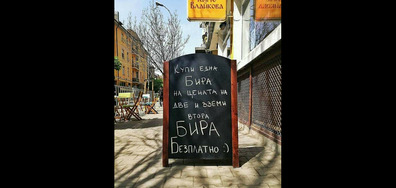 Купи една
Бира
на цената на
две и вземи
втора
Бира
Безплатно :)